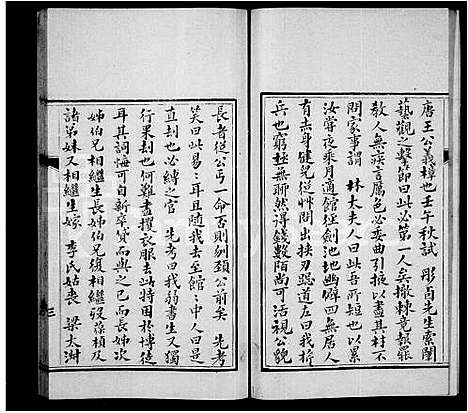 唐王公義樟也壬午秋試彤卣先生索闈
藝觀之擊節曰此必第一人矣撤棘竟報罷
教人無疾言厲色必委曲引掖以盡其材不
問家事謂林太夫人曰此若短也以累
汝嘗夜乘月適館經劍池池幽僻四無居人
有赤身健兒從草間出挾刃

道左曰我於
兵也窮極無聊然得錢數陌尚可活視公貌
長者從公丐一命否則刎頸公前矣先考
笑曰此易耳且隨我去至館中人曰是
直刦也必縛之官先考曰我弱書生又獨
行果刦也何難盡攫衣服去此特困於博徒
耳其詞悔可自新卒貸而與之已而長姊次
姊伯兄相繼生長姊伯兄復相繼歿藻楨及
諸弟妹又相繼生嫁李氏姑喪梁太淑
三